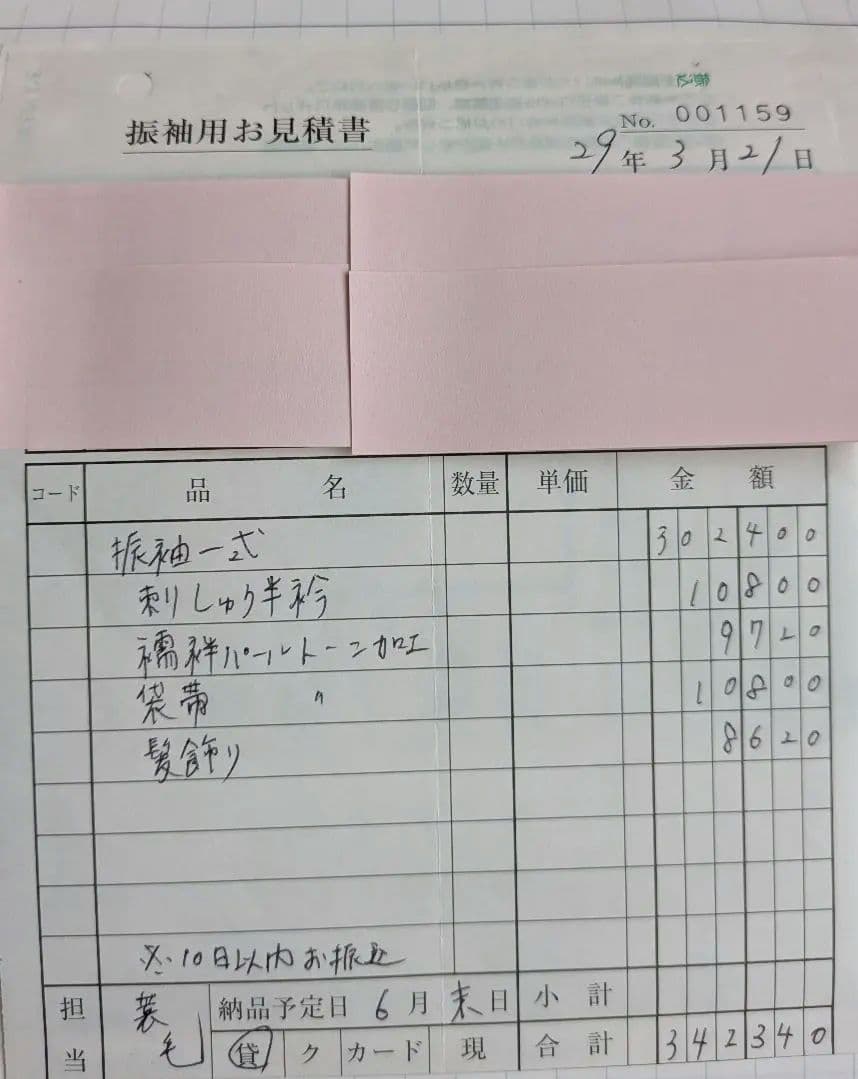 振込
振袖用お見積書
No. 001159
29年3月21日
コード 品名 数量 単価 金額
振袖一式 302400
刺しゅう半衿 10800
襦袢パールトーン加工 9720
袋帯 〃 10800
髪飾り 8620
※10日以内お振込
担当 蓑毛 納品予定日 6月末日 小計
貸 ク カード 現 合計 342340